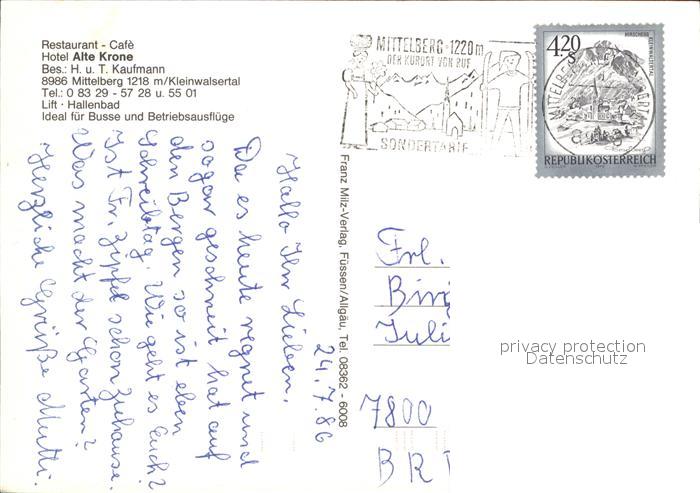 Restaurant - Cafè
Hotel Alte Krone
Bes.: H. u. T. Kaufmann
8986 Mittelberg 1218 m/Kleinwalsertal
Tel.: 0 83 29 - 57 28 u. 55 01
Lift · Hallenbad
Ideal für Busse und Betriebsausflüge
MITTELBERG·1220m
DER KURORT VON RUF
SONDERTARIF
4,20
S
HIRSCHEGG
KLEINWALSERTAL
REPUBLIK ÖSTERREICH
Franz Milz-Verlag, Füssen/Allgäu, Tel. 08362 - 6008
24.7.86
Hallo Ihr Lieben,
Da es heute regnet und
sogar geschneit hat auf
den Bergen so ist eben
Schreibtag. Wie geht es Euch?
Ist Fr. Zipfel schon zuhause.
Was macht der Garten?
Herzliche Grüße Mutti.
Frl.
Juli
7800
BR
privacy protection
Datenschutz